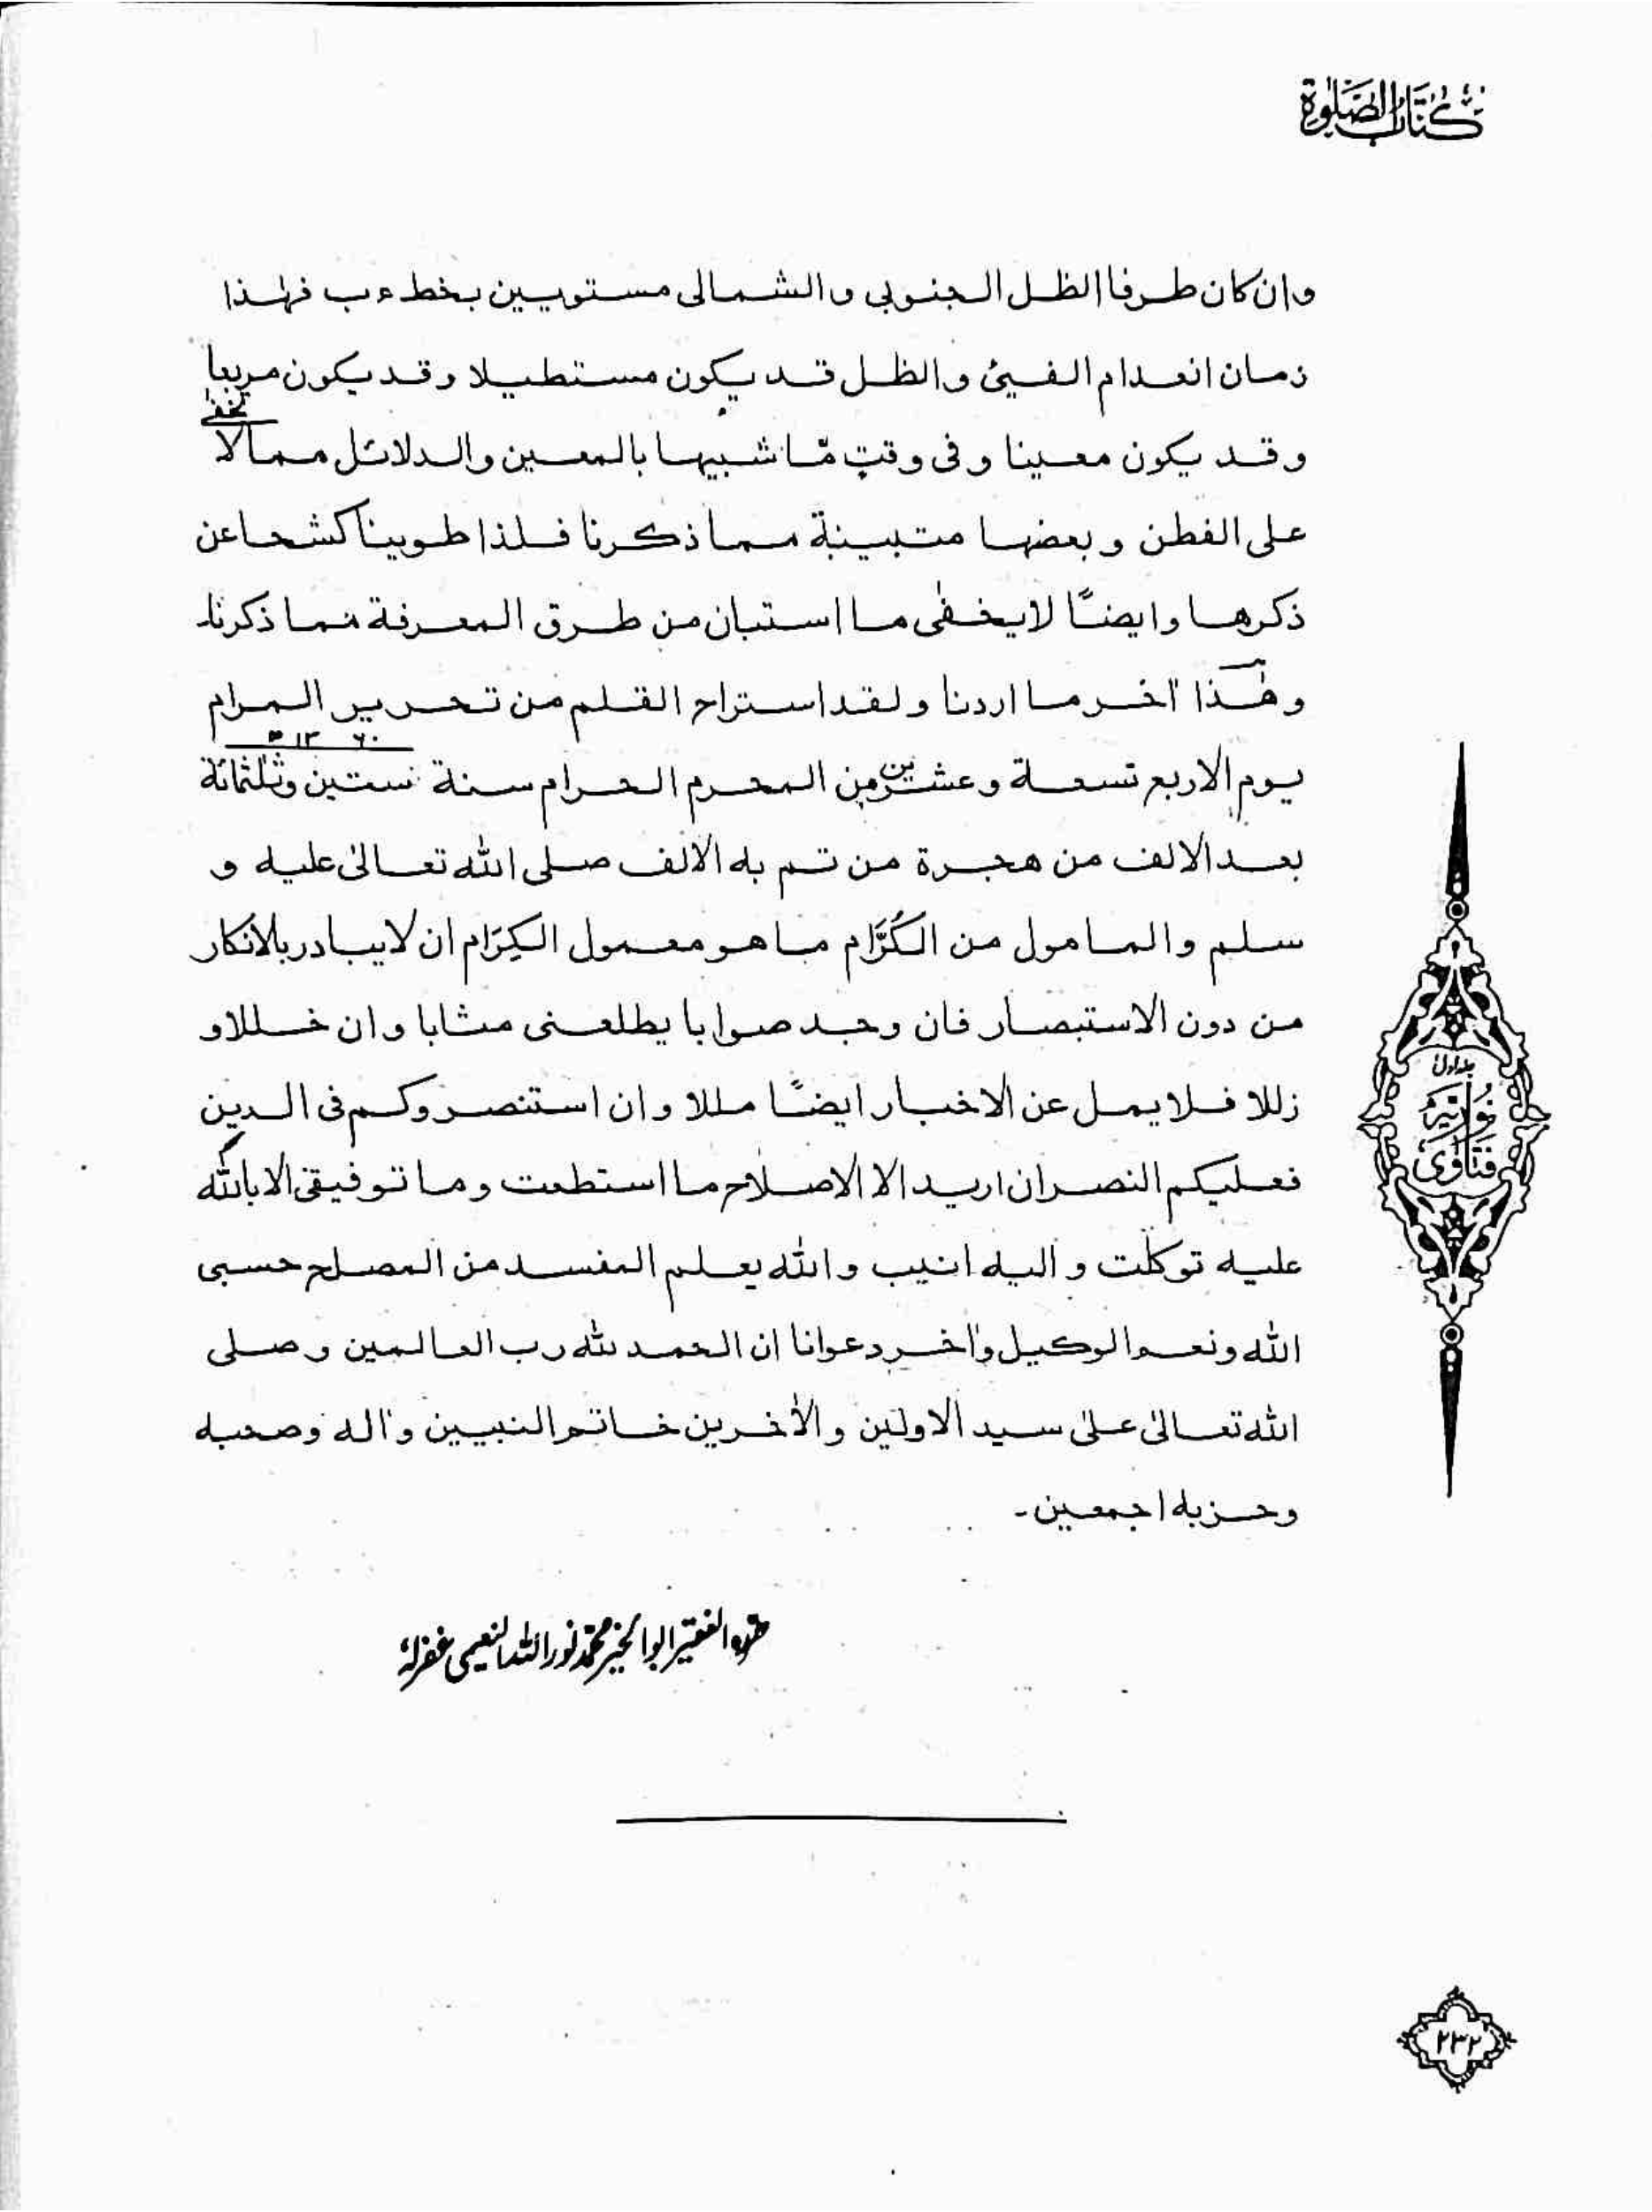 كتاب الصلوة
وان كان طرفا الظل الجنوبی والشمالی مستويين بخط ءب فهٰذا
زمان انعدام الفیئ والظل قد يكون مستطيلا وقد يكون مربعا
وقد يكون معينا وفی وقتٍ مّا شبيها بالمعين والدلائل مما لا يخفٰی
علی الفطن وبعضها متبينة مما ذكرنا فلذا طوينا كشحا عن
ذكرها وايضًا لا يخفٰی ما استبان من طرق المعرفة مما ذكرنا۔
وهٰذا اٰخر ما اردنا ولقد استراح القلم من تحرير المرام
يوم الاربع تسعة وعشرين من المحرم الحرام سنة ستين وثلثمائة ۱۳۶۰ھ
بعد الالف من هجرة من تم به الالف صلی الله تعالیٰ عليه و
سلم والمامول من الكُرَّام ما هو معمول الكِرَام ان لا يبادر بالانكار
من دون الاستبصار فان وجد صوابا يطلعنی مثابا وان خللا و
زللا فلا يمل عن الاخبار ايضًا مللا وان استنصروكم فی الدين
فعليكم النصر ان اريد الا الاصلاح ما استطعت وما توفيقی الا بالله
عليه توكلت واليه انيب والله يعلم المفسد من المصلح حسبی
الله ونعم الوكيل واٰخر دعوانا ان الحمد لله رب العالمين وصلی
الله تعالیٰ علیٰ سيد الاولين والاٰخرين خاتم النبيين واٰله وصحبه
وحزبه اجمعين۔
حرره الفقير ابو الخير محمد نور الله النعیمی غفرلہٗ
جلد اول
فتاوی نوریہ
۲۳۲